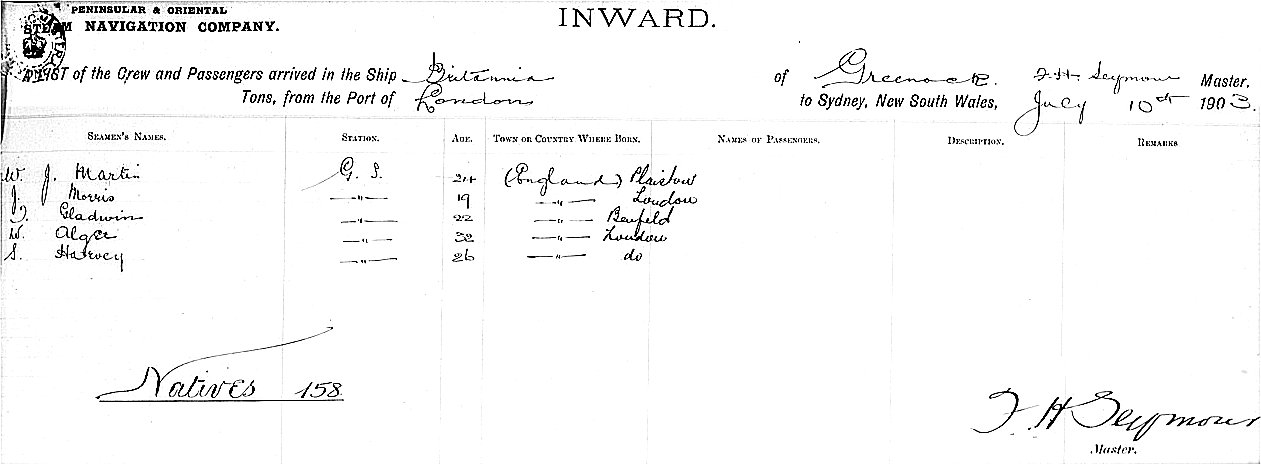 PENINSULAR & ORIENTAL
STEAM NAVIGATION COMPANY.
INWARD.
A LIST of the Crew and Passengers arrived in the Ship Britannia of Greenock. F. H. Seymour Master.
Tons, from the Port of London to Sydney, New South Wales, July 10th 1903.
SEAMEN'S NAMES. STATION. AGE. TOWN OR COUNTRY WHERE BORN. NAMES OF PASSENGERS. DESCRIPTION. REMARKS
W. J. Martin G. S. 24 (England) Plaistow
J. Morris —"— 19 —"— London
Gladwin —"— 22 —"— Benfield
W. Alger —"— 32 —"— London
S. Harvey —"— 26 —"— do
Natives 158
F. H Seymour
Master.